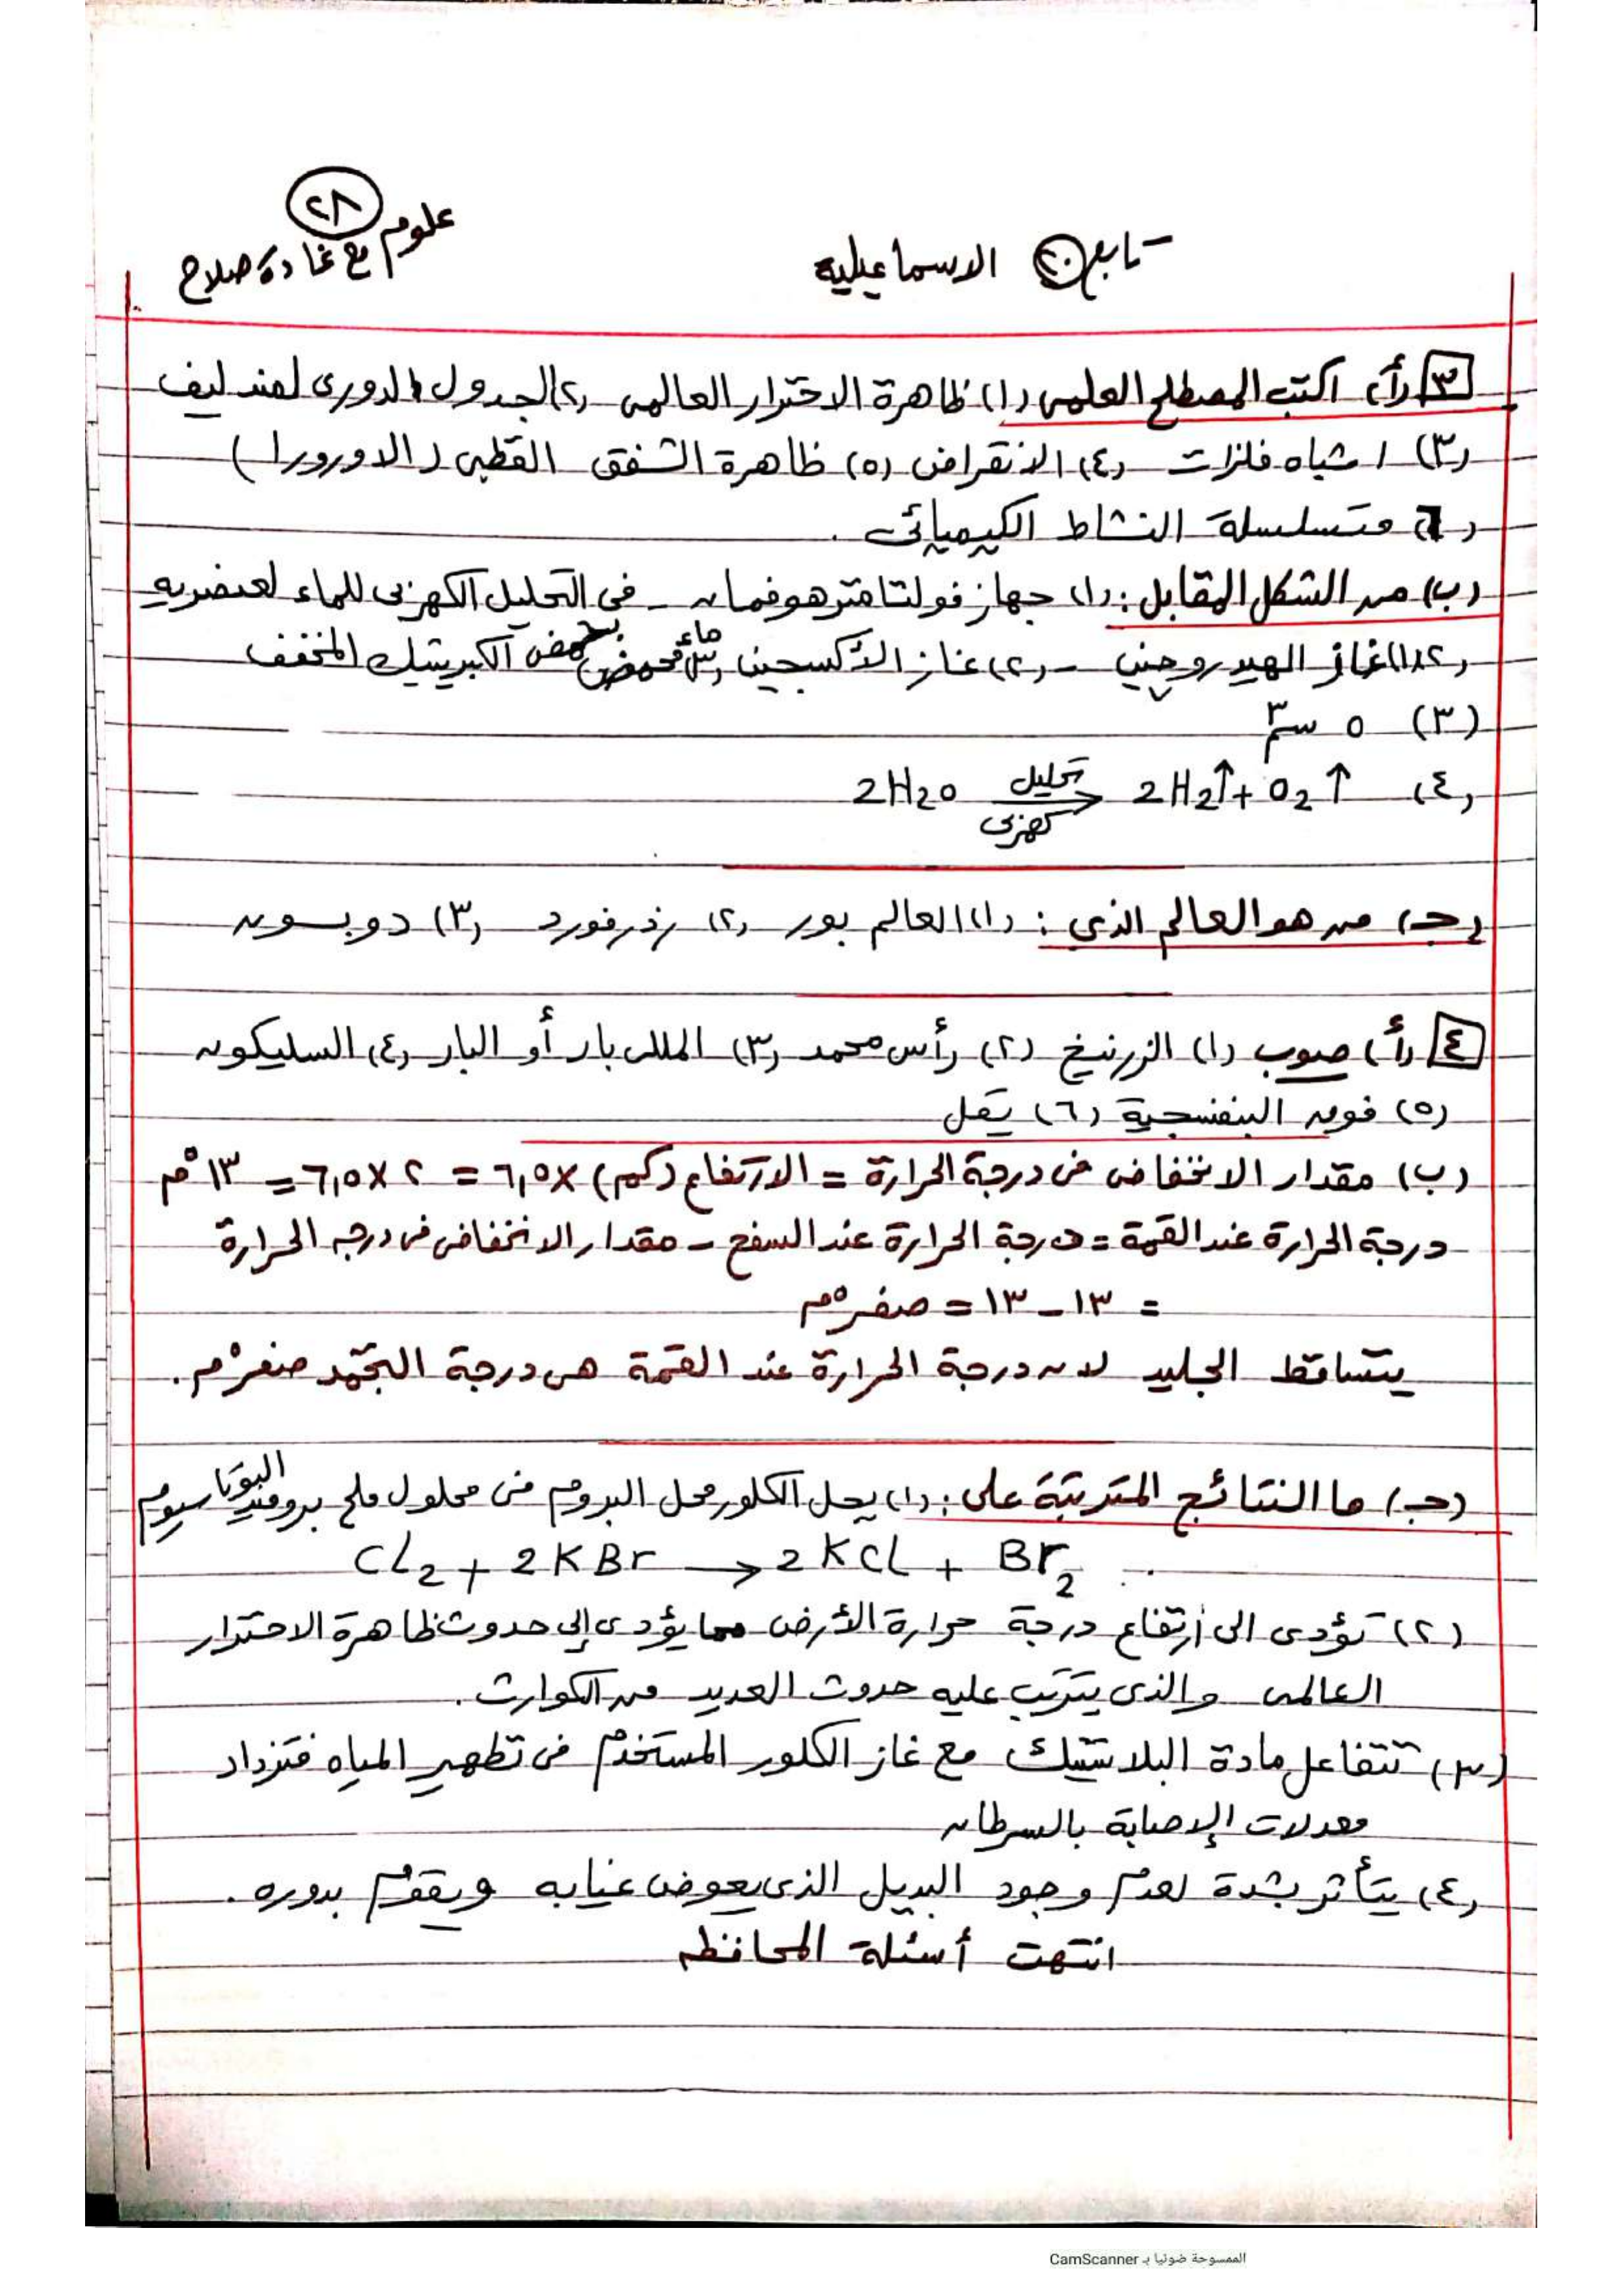 ٢٨
علوم مع غادة صلاح
تابع ٢٠ الاسماعيلية
٣ (أ) اكتب المصطلح العلمى (١) ظاهرة الاحترار العالمى (٢) الجدول الدورى لمندليف
(٣) اشباه فلزات (٤) الانقراض (٥) ظاهرة الشفق القطبى (الاورورا)
(٦) متسلسلة النشاط الكيميائى .
(ب) من الشكل المقابل : (١) جهاز فولتامتر هوفمان - فى التحليل الكهربى للماء لعنصريه
(٢) (١) غاز الهيدروجين - (٢) غاز الأكسجين (٣) ماء محمض بحمض الكبريتيك المخفف
(٣) ٥ سم٣
(٤) 2H2O تحليل كهربى → 2H2↑ + O2↑
(جـ) من هو العالم الذى : (١) العالم بور (٢) رذرفورد (٣) دوبسون
٤ (أ) صوب (١) الزرنيخ (٢) رأس محمد (٣) المللى بار أو البار (٤) السليكون
(٥) فوق البنفسجية (٦) يقل
(ب) مقدار الانخفاض فى درجة الحرارة = الارتفاع (كم) × ٦,٥ = ٢ × ٦,٥ = ١٣°م
درجة الحرارة عند القمة = درجة الحرارة عند السفح - مقدار الانخفاض فى درجه الحرارة
= ١٣ - ١٣ = صفر°م
يتساقط الجليد لان درجة الحرارة عند القمة هى درجة التجمد صفر°م .
(جـ) ما النتائج المترتبة على : (١) يحل الكلور محل البروم فى محلول ملح بروميد البوتاسيوم
Cl2 + 2KBr → 2KCl + Br2
(٢) تؤدى الى إرتفاع درجة حرارة الأرض مما يؤدى إلى حدوث ظاهرة الاحترار
العالمى والذى يترتب عليه حدوث العديد من الكوارث .
(٣) تتفاعل مادة البلاستيك مع غاز الكلور المستخدم فى تطهير المياه فتزداد
معدلات الإصابة بالسرطان
(٤) يتأثر بشدة لعدم وجود البديل الذى يعوض غيابه ويقوم بدوره .
انتهت أسئلة المحافظه
الممسوحة ضوئيا بـ CamScanner